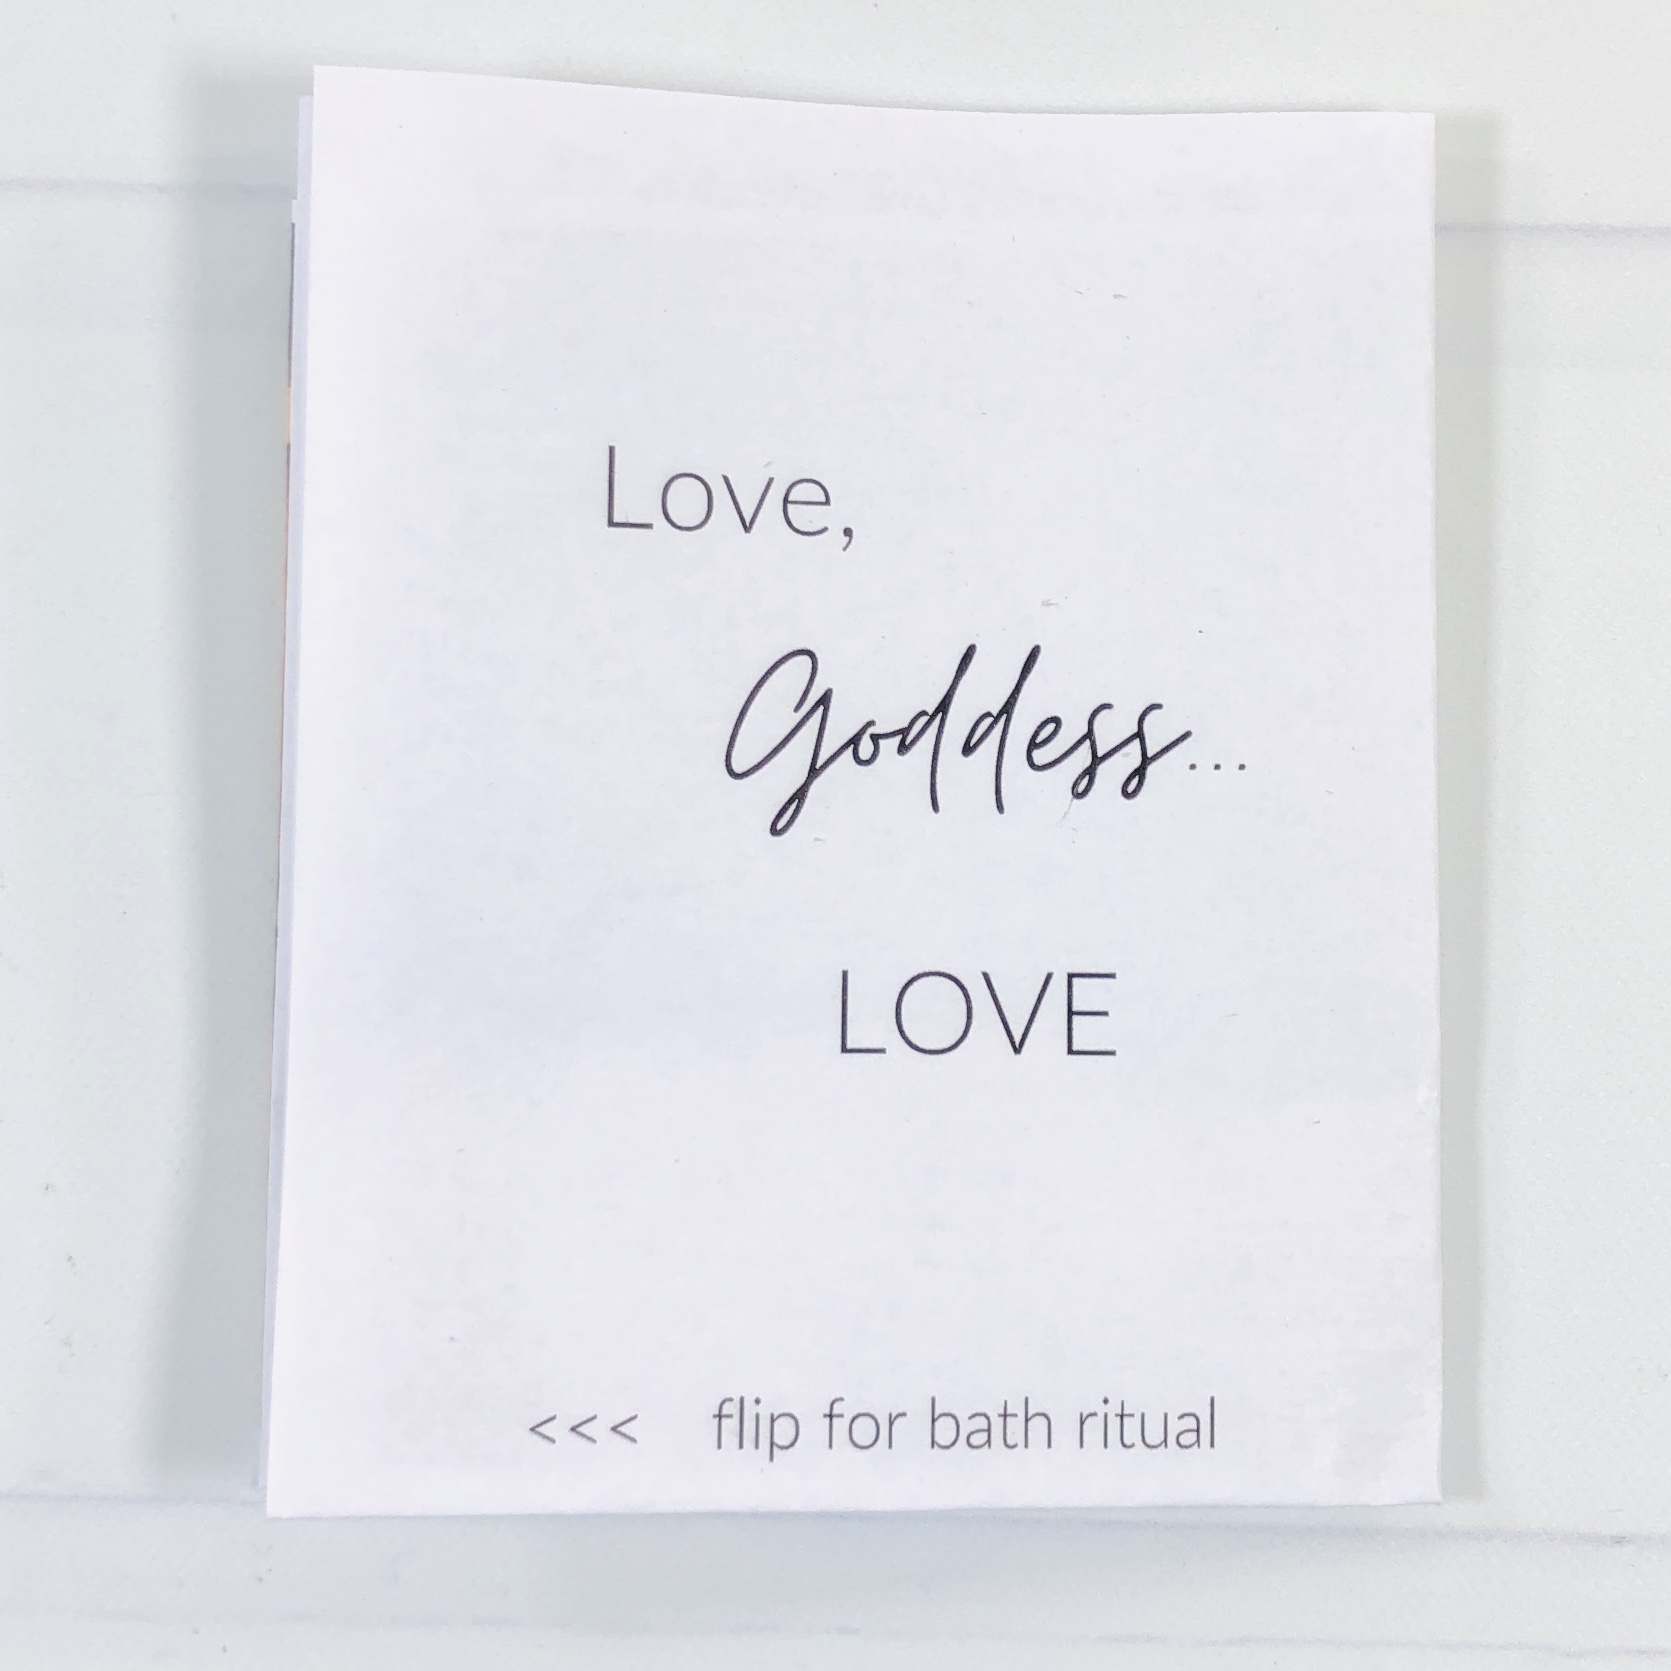 Love,
Goddess...
LOVE
<<< flip for bath ritual